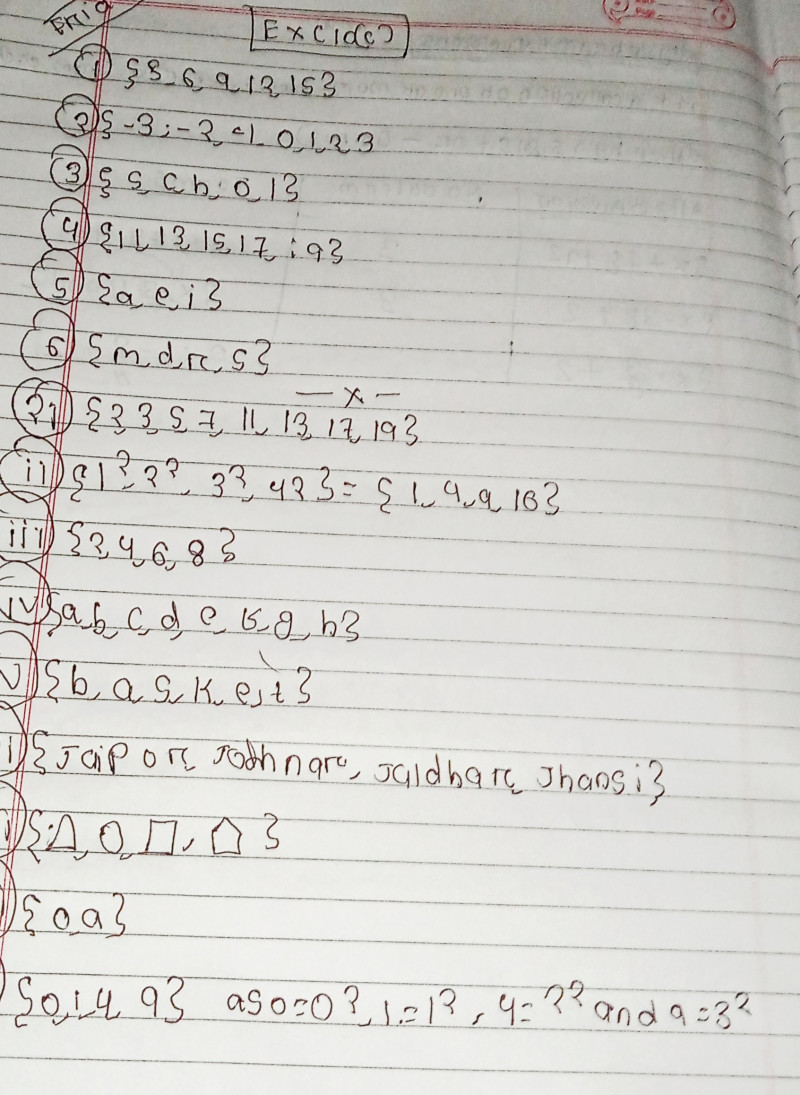 Exc 1(c)
① {3, 6, 9, 12, 15}
② {-3, -2, -1, 0, 1, 2, 3
③ {5, c, h, o, l}
④ {11, 13, 15, 17, 19}
⑤ {a, e, i}
⑥ {m, d, r, s}
— x —
2i) {2, 3, 5, 7, 11, 13, 17, 19}
ii) {1², 2², 3², 4²} = {1, 4, 9, 16}
iii) {2, 4, 6, 8}
iv) {a, b, c, d, e, f, g, h}
v) {b, a, s, k, e, t}
i) {Jaipor, Jodhnare, Jaldharc, Jhansi}
i) {△, ○, □, ⌂}
) {o, a}
{0, 1, 4, 9} as 0=0², 1=1², 4=2² and 9=3²